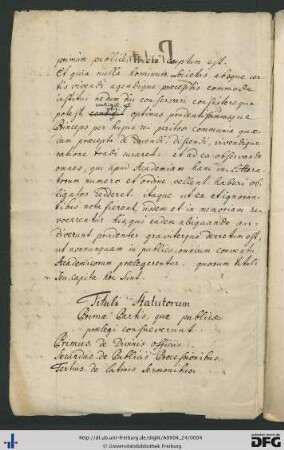 primum publice doceri cœptum est.
Et quia nulla hominum societas absque cer-
tis vivendi agendique præceptis commode
institui nedum diu conservari consistereque
potest, optimus prudentissimusque
Princeps per hujus rei peritos communia quæ-
dam præcepta de docendi, discendi, vivendique
ratione tradi curaret. et ad ea observanda
omnes, qui apud Academiam hanc in littera-
torum numero et ordine vellent haberi ob-
ligatos redderet. Itaque ut ea et ignoran-
tibus nota fierent, iisdem et in memoriam re-
vocarentur his qui eadem aliquando au-
diverant prudenter graviterque decretum est,
ut nonnunquam in publico omnium conventu
Academicorum prælegerentur. quorum tituli
seu capita hæc sunt.
Tituli Statutorum
Primæ Partis, quæ publice
prælegi consueverunt.
Primus de Divinis officiis
Secundus de Publicis Processionibus
Tertius de Latinis Sermonibus
http://dl.ub.uni-freiburg.de/diglit/A0004_24/0004
Universitätsbibliothek Freiburg
gefördert durch die
DFG